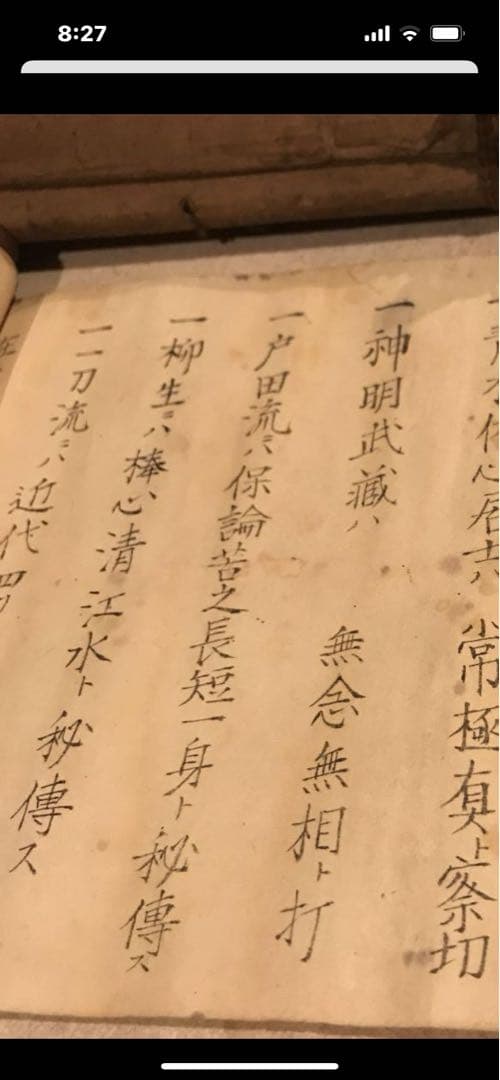 8:27
水 心居士ハ 常極真ト察切
一神明武藏ハ 無念無相ト打
一戸田流ニハ保論苦之長短一身ト秘傳ス
一柳生ニハ棒心清江水ト秘傳ス
一一刀流ニハ近代四